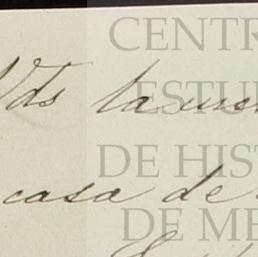 CENTR
Vds la
ESTU
DE HIS
casa de
DE ME